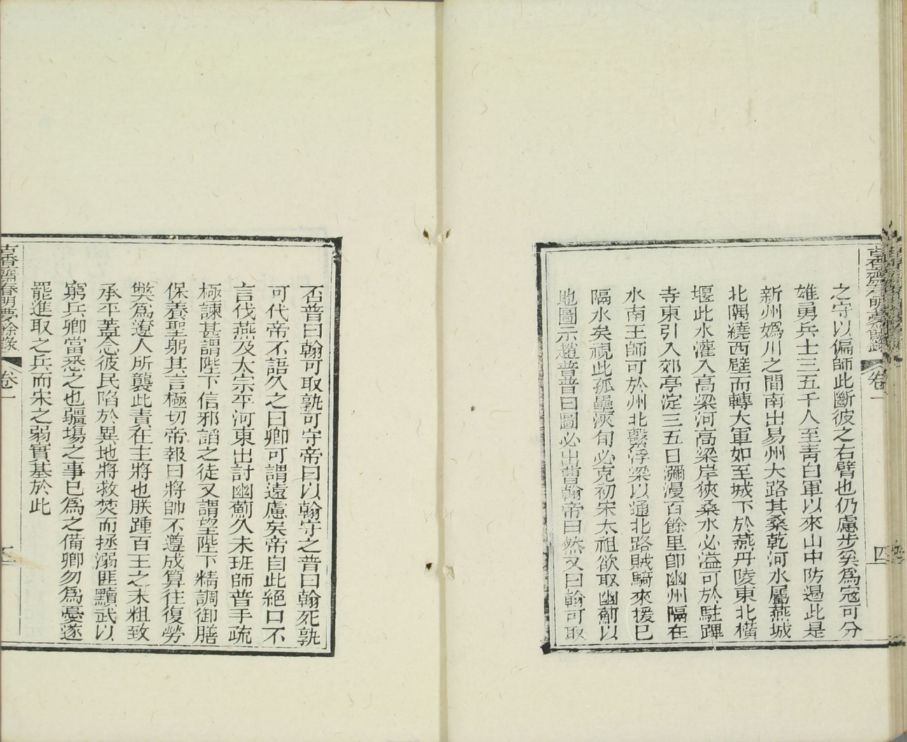 之守以偏師此斷彼之右臂也仍慮步奚為寇可分
雄勇兵士三五千人至青白軍以來山中防遏此是
新州媯川之間南出易州大路其桑乾河水屬燕城
北隅繞西壁而轉大軍如至城下於燕丹陵東北橫
堰此水灌入高梁河高梁岸狹桑水必溢可於駐蹕
寺東引入郊亭淀三五日瀰漫百餘里即幽州隔在
水南王師可於州北繫浮梁以通北路賊騎來援已
隔水矣視此孤壘浹旬必克初宋太祖欲取幽薊以
地圖示趙普普曰圖必出曹翰帝曰然又曰翰可取
古香齋春明夢餘錄
卷一
四
否普曰翰可取孰可守帝曰以翰守之普曰翰死孰
可代帝不語久之曰卿可謂遠慮矣帝自此絕口不
言伐燕及太宗平河東出討幽薊久未班師普手疏
極諫甚謂陛下信邪諂之徒又謂望陛下精調御膳
保養聖躬其言極切帝報曰將帥不遵成算往復勞
弊為遼人所襲此責在主將也朕踵百王之末粗致
承平蓋念彼民陷於異地將救焚而拯溺匪黷武以
窮兵卿當悉之也疆場之事已為之備卿勿為憂遂
罷進取之兵而宋之弱實基於此
古香齋春明夢餘錄
卷一